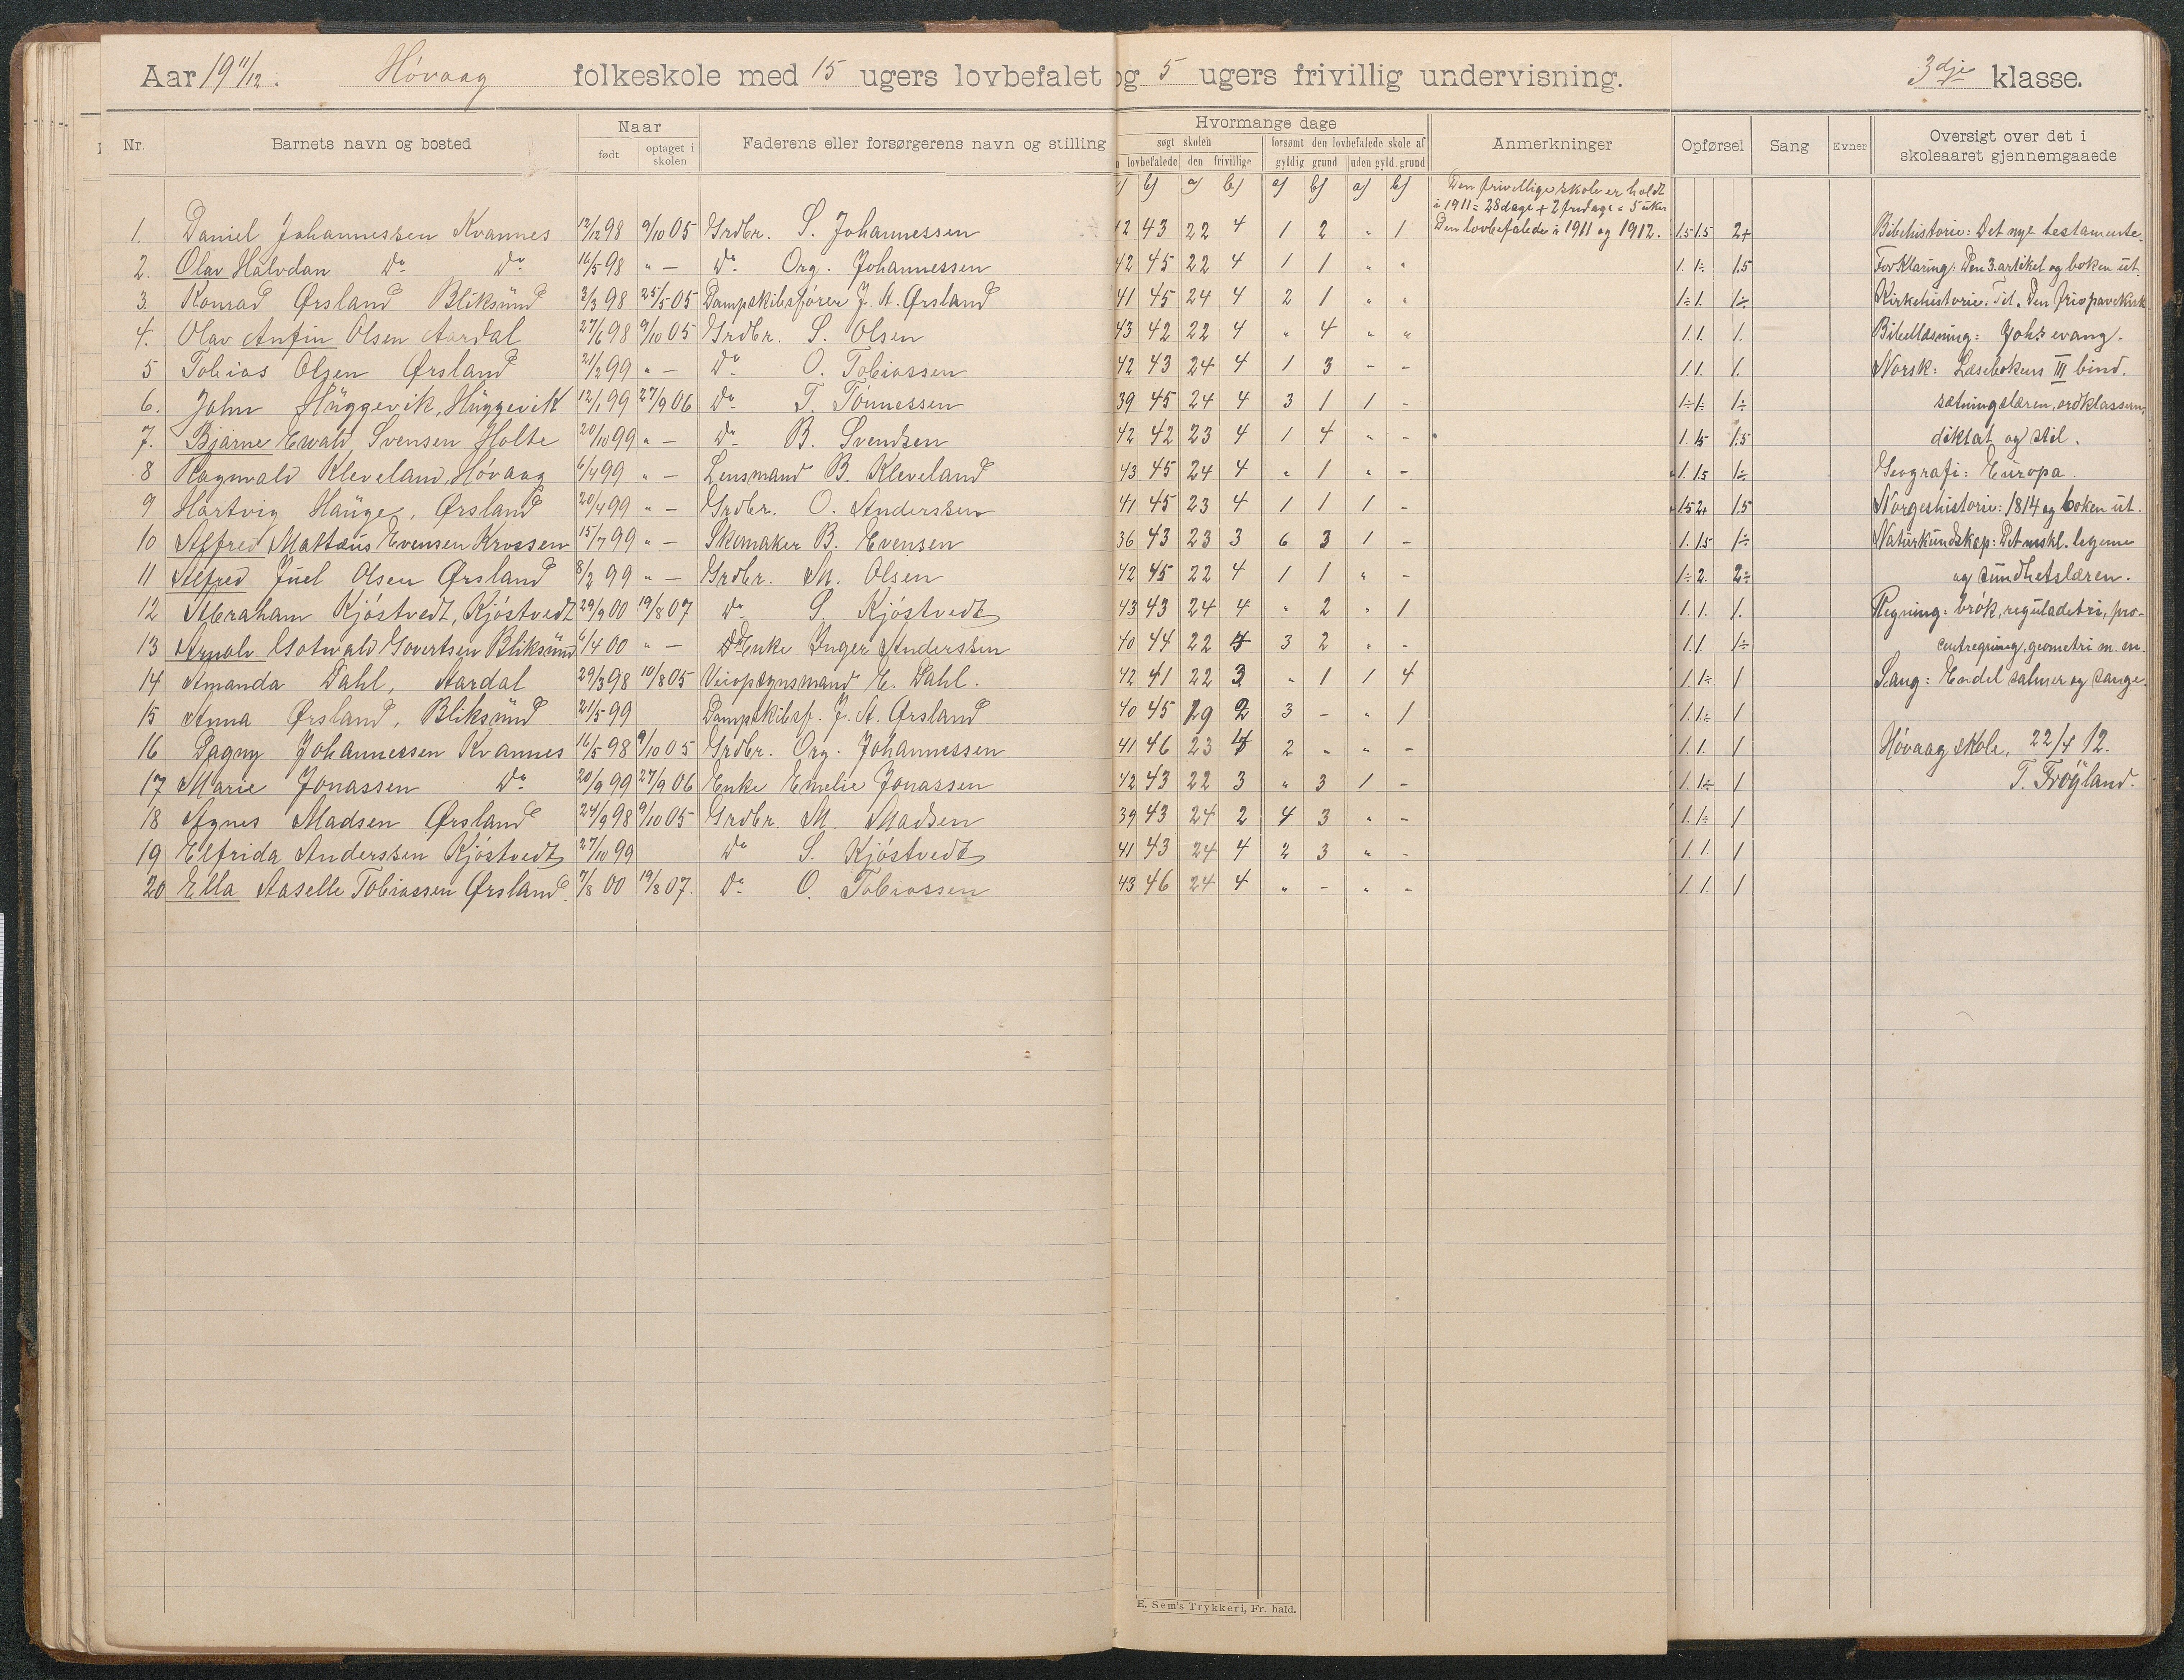 Aar 19 11/12. Høvaag folkeskole med 15 ugers lovbefalet og 5 ugers frivillig undervisning. 3dje klasse.
Nr. Barnets navn og bosted Naar født optaget i skolen Faderens eller forsørgerens navn og stilling Hvormange dage søgt skolen lovbefalede den frivillige forsømt den lovbefalede skole af gyldig grund uden gyld. grund Anmerkninger Opførsel Sang Evner Oversigt over det i skoleaaret gjennemgaaede
b) a) b) a) b) a) b) Den frivillige skole er holdt
i 1911 = 28 dage + 2 fridage = 5 uker
1. Daniel Johannessen Kvannes 12/12 98 9/10 05 Grdbr. S. Johannessen 12 43 22 4 1 2 " 1 Den lovbefalede i 1911 og 1912. 1.5 1.5 2+ Bibelhistorie: Det nye testamente.
2. Olav Halvdan do do 16/5 98 " — do Org. Johannessen 42 45 22 4 1 1 " " 1. 1÷ 1.5 Forklaring: Den 3. artikel og boken ut.
3. Konrad Ørsland Bliksund 3/3 98 25/5 05 Dampskibsfører J. A. Ørsland 41 45 24 4 2 1 " " 1÷ 1. 1÷ Kirkehistorie: Til
4. Olav Anfin Olsen Aardal 27/6 98 9/10 05 Grdbr. S. Olsen 43 42 22 4 " 4 " " 1. 1. 1. Bibellæsning: Johs evang.
5 Tobias Olsen Ørsland 21/2 99 " — do O. Tobiassen 42 43 24 4 1 3 - - 1. 1. 1. Norsk: Læsebokens III bind.
6. John Huggevik, Huggevik 12/1 99 27/9 06 do T. Tønnessen 39 45 24 4 3 1 1 - 1÷ 1÷ 1÷ sætningslæren, ordklassern,
7. Bjarne Ewald Svensen Holte 20/10 99 " — do B. Svendsen 42 42 23 4 1 4 " - 1. 1.5 1.5 diktat og stil.
8 Ragnvald Kleveland, Høvaag 6/4 99 " — Lensmand B. Kleveland 43 45 24 4 " 1 " - 1. 1.5 1÷ Geografi: Europa.
9 Hartvig Hauge, Ørsland 20/4 99 " — Grdbr. O. Anderssen 41 45 23 4 1 1 1 - 1.5 2+ 1.5 Norgeshistorie: 1814 og boken ut.
10 Alfred Mattæus Evensen Krossen 15/7 99 " — Skomaker B. Evensen 36 43 23 3 6 3 1 - 1. 1.5 1÷ Naturkundskap: Det mskl. legeme
11 Alfred Juel Olsen Ørsland 8/2 99 " — Grdbr. M. Olsen 42 45 22 4 1 1 " - 1÷ 2. 2÷ og sundhetslæren.
12 Abraham Kjøstvedt, Kjøstvedt 29/9 00 19/8 07 do S. Kjøstvedt 43 43 24 4 " 2 " 1 1. 1. 1. Regning: brøk, reguladetri, pro-
13 Arnold Gotvald Govertsen Bliksund 6/4 00 " — Enke Inger Anderssen 40 44 22 4 3 2 " - 1. 1 1÷ centregning, geometri m. m.
14 Amanda Dahl, Aardal 29/3 98 10/8 05 Veiopsynsmand E. Dahl. 42 41 22 3 " 1 1 4 1. 1÷ 1 Sang: Endel salmer og sange.
15 Anna Ørsland, Bliksund 21/5 99 Dampskibsf. J. A. Ørsland 40 45 19 2 3 - " 1 1. 1÷ 1
16 Dagny Johannessen Kvannes 16/5 98 9/10 05 Grdbr. Org. Johannessen 41 46 23 4 2 " " - 1. 1. 1 Høvaag skole, 22/4 12.
17 Marie Jonassen do 20/9 99 27/9 06 Enke Emelie Jonassen 42 43 22 3 " 3 1 - 1. 1÷ 1 T. Frøyland.
18 Agnes Madsen Ørsland 24/9 98 9/10 05 Grdbr. M. Madsen 39 43 24 2 4 3 " - 1. 1÷ 1
19 Elfrida Anderssen Kjøstvedt 27/10 99 do S. Kjøstvedt 41 43 24 4 2 3 " - 1. 1. 1
20 Ella Aaselle Tobiassen Ørsland. 7/8 00 19/8 07. do O. Tobiassen 43 46 24 4 " - " - 1. 1. 1
E. Sem's Trykkeri, Fr. hald.